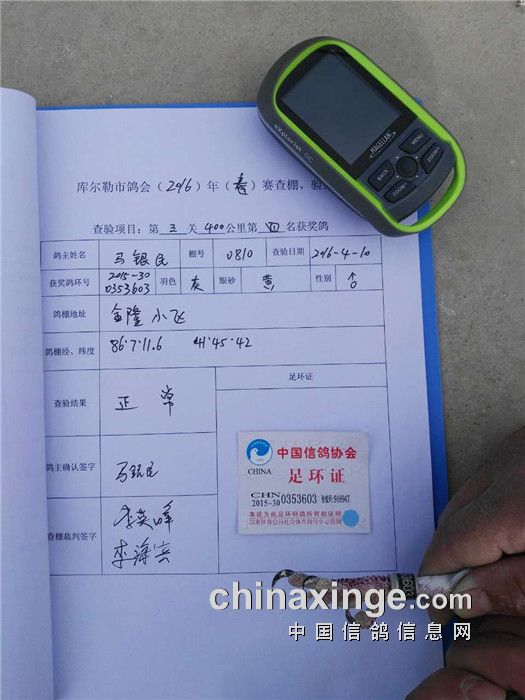 MAGELLAN
eXplorist GC
BACK
MENU
ZOOM-
ZOOM+
库尔勒市鸽会(2016)年(春)赛查棚、验
查验项目:第 三 关 400公里第 四 名获奖鸽
鸽主姓名 马银民 棚号 0810 查验日期 2016-4-10
获奖鸽环号 2015-30 0353603 羽色 灰 眼砂 黄 性别 ♂
鸽棚地址 金隆小飞
鸽棚经、纬度 86·7·11.6 41·45·42
足环证
查验结果 正常
鸽主确认签字 马银民
查棚裁判签字 李英峰
李海宾
中国信鸽协会
CHINA 足环证
CHN
2015-30 0353603
本证为此足环信鸽所有权证明
国家体育总局社会体育指导中心监制
chinaxinge.com
中国信鸽信息网